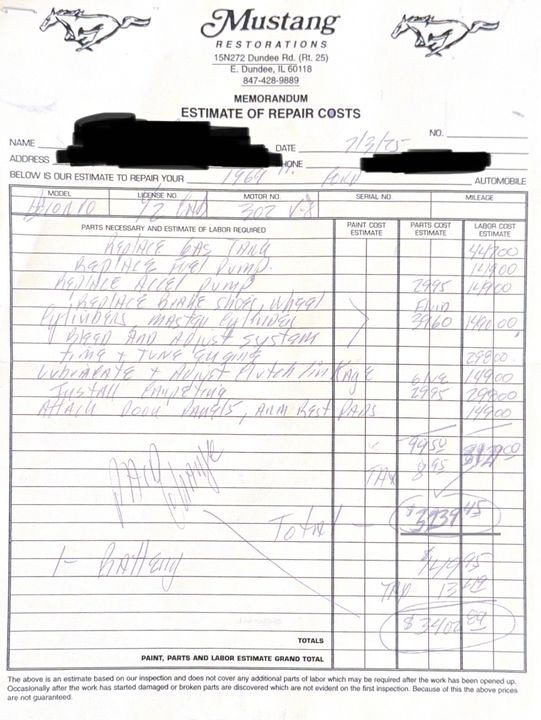 Mustang
RESTORATIONS
15N272 Dundee Rd. (Rt. 25)
E. Dundee, IL 60118
847-428-9889
MEMORANDUM
ESTIMATE OF REPAIR COSTS
NO.
NAME DATE 7/3/25
ADDRESS PHONE
BELOW IS OUR ESTIMATE TO REPAIR YOUR 1969 FORD AUTOMOBILE
MODEL LICENSE NO. MOTOR NO. SERIAL NO. MILEAGE
302 V-8
PARTS NECESSARY AND ESTIMATE OF LABOR REQUIRED PAINT COST ESTIMATE PARTS COST ESTIMATE LABOR COST ESTIMATE
REPLACE GAS TANK 44700
REPLACE FUEL PUMP. 14900
REPLACE ACCEL PUMP 2995 14900
REPLACE BRAKE SHOES, WHEEL FLUID
CYLINDERS MASTER CYLINDER 3960
BLEED AND ADJUST SYSTEM
TIME + TUNE ENGINE 29800
LUBRICATE + ADJUST CLUTCH LINKAGE 14900
INSTALL CARPETING 2995
ATTACH DOOR PANELS, ARM REST PADS 14900
9950
TAX 895
PAID
TOTAL $ 45
1- BATTERY $14995
TAX 13
$3402
TOTALS
PAINT, PARTS AND LABOR ESTIMATE GRAND TOTAL
The above is an estimate based on our inspection and does not cover any additional parts of labor which may be required after the work has been opened up.
Occasionally after the work has started damaged or broken parts are discovered which are not evident on the first inspection. Because of this the above prices
are not guaranteed.